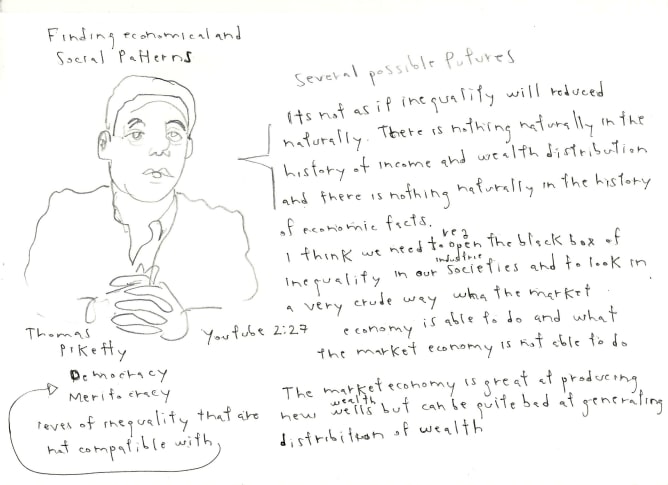 Finding economical and
Social Patterns
Several possible futures
Its not as if inequality will reduced
naturally. There is nothing naturally in the
history of income and wealth distribution
and there is nothing naturally in the history
of economic facts.
I think we need to open the black box of
inequality in our industrie societies and to look in
a very crude way the market
economy is able to do and what
the market economy is not able to do
Thomas
Piketty
YouTube 2:27
Democracy
Meritocracy
leves of inequality that are
not compatible with
The market economy is great at producing
new wealth wells but can be quite bad at generating
distribition of wealth